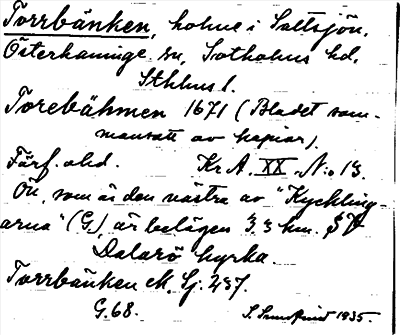 Torrbänken, holme i Saltsjön,
Österhaninge sn, Sotholms hd,
Sthlms l.
Torebähmen 1671 (Bladet sam-
mansatt av kopior).
Förf. okd. Kr. A. XX. N:o 13.
Ön, som är den västra av "Kyckling-
arna" (G.), är belägen 3,3 km. SV
Dalarö kyrka.
Torrbänken Sj. 237.
G. 68. 1935.